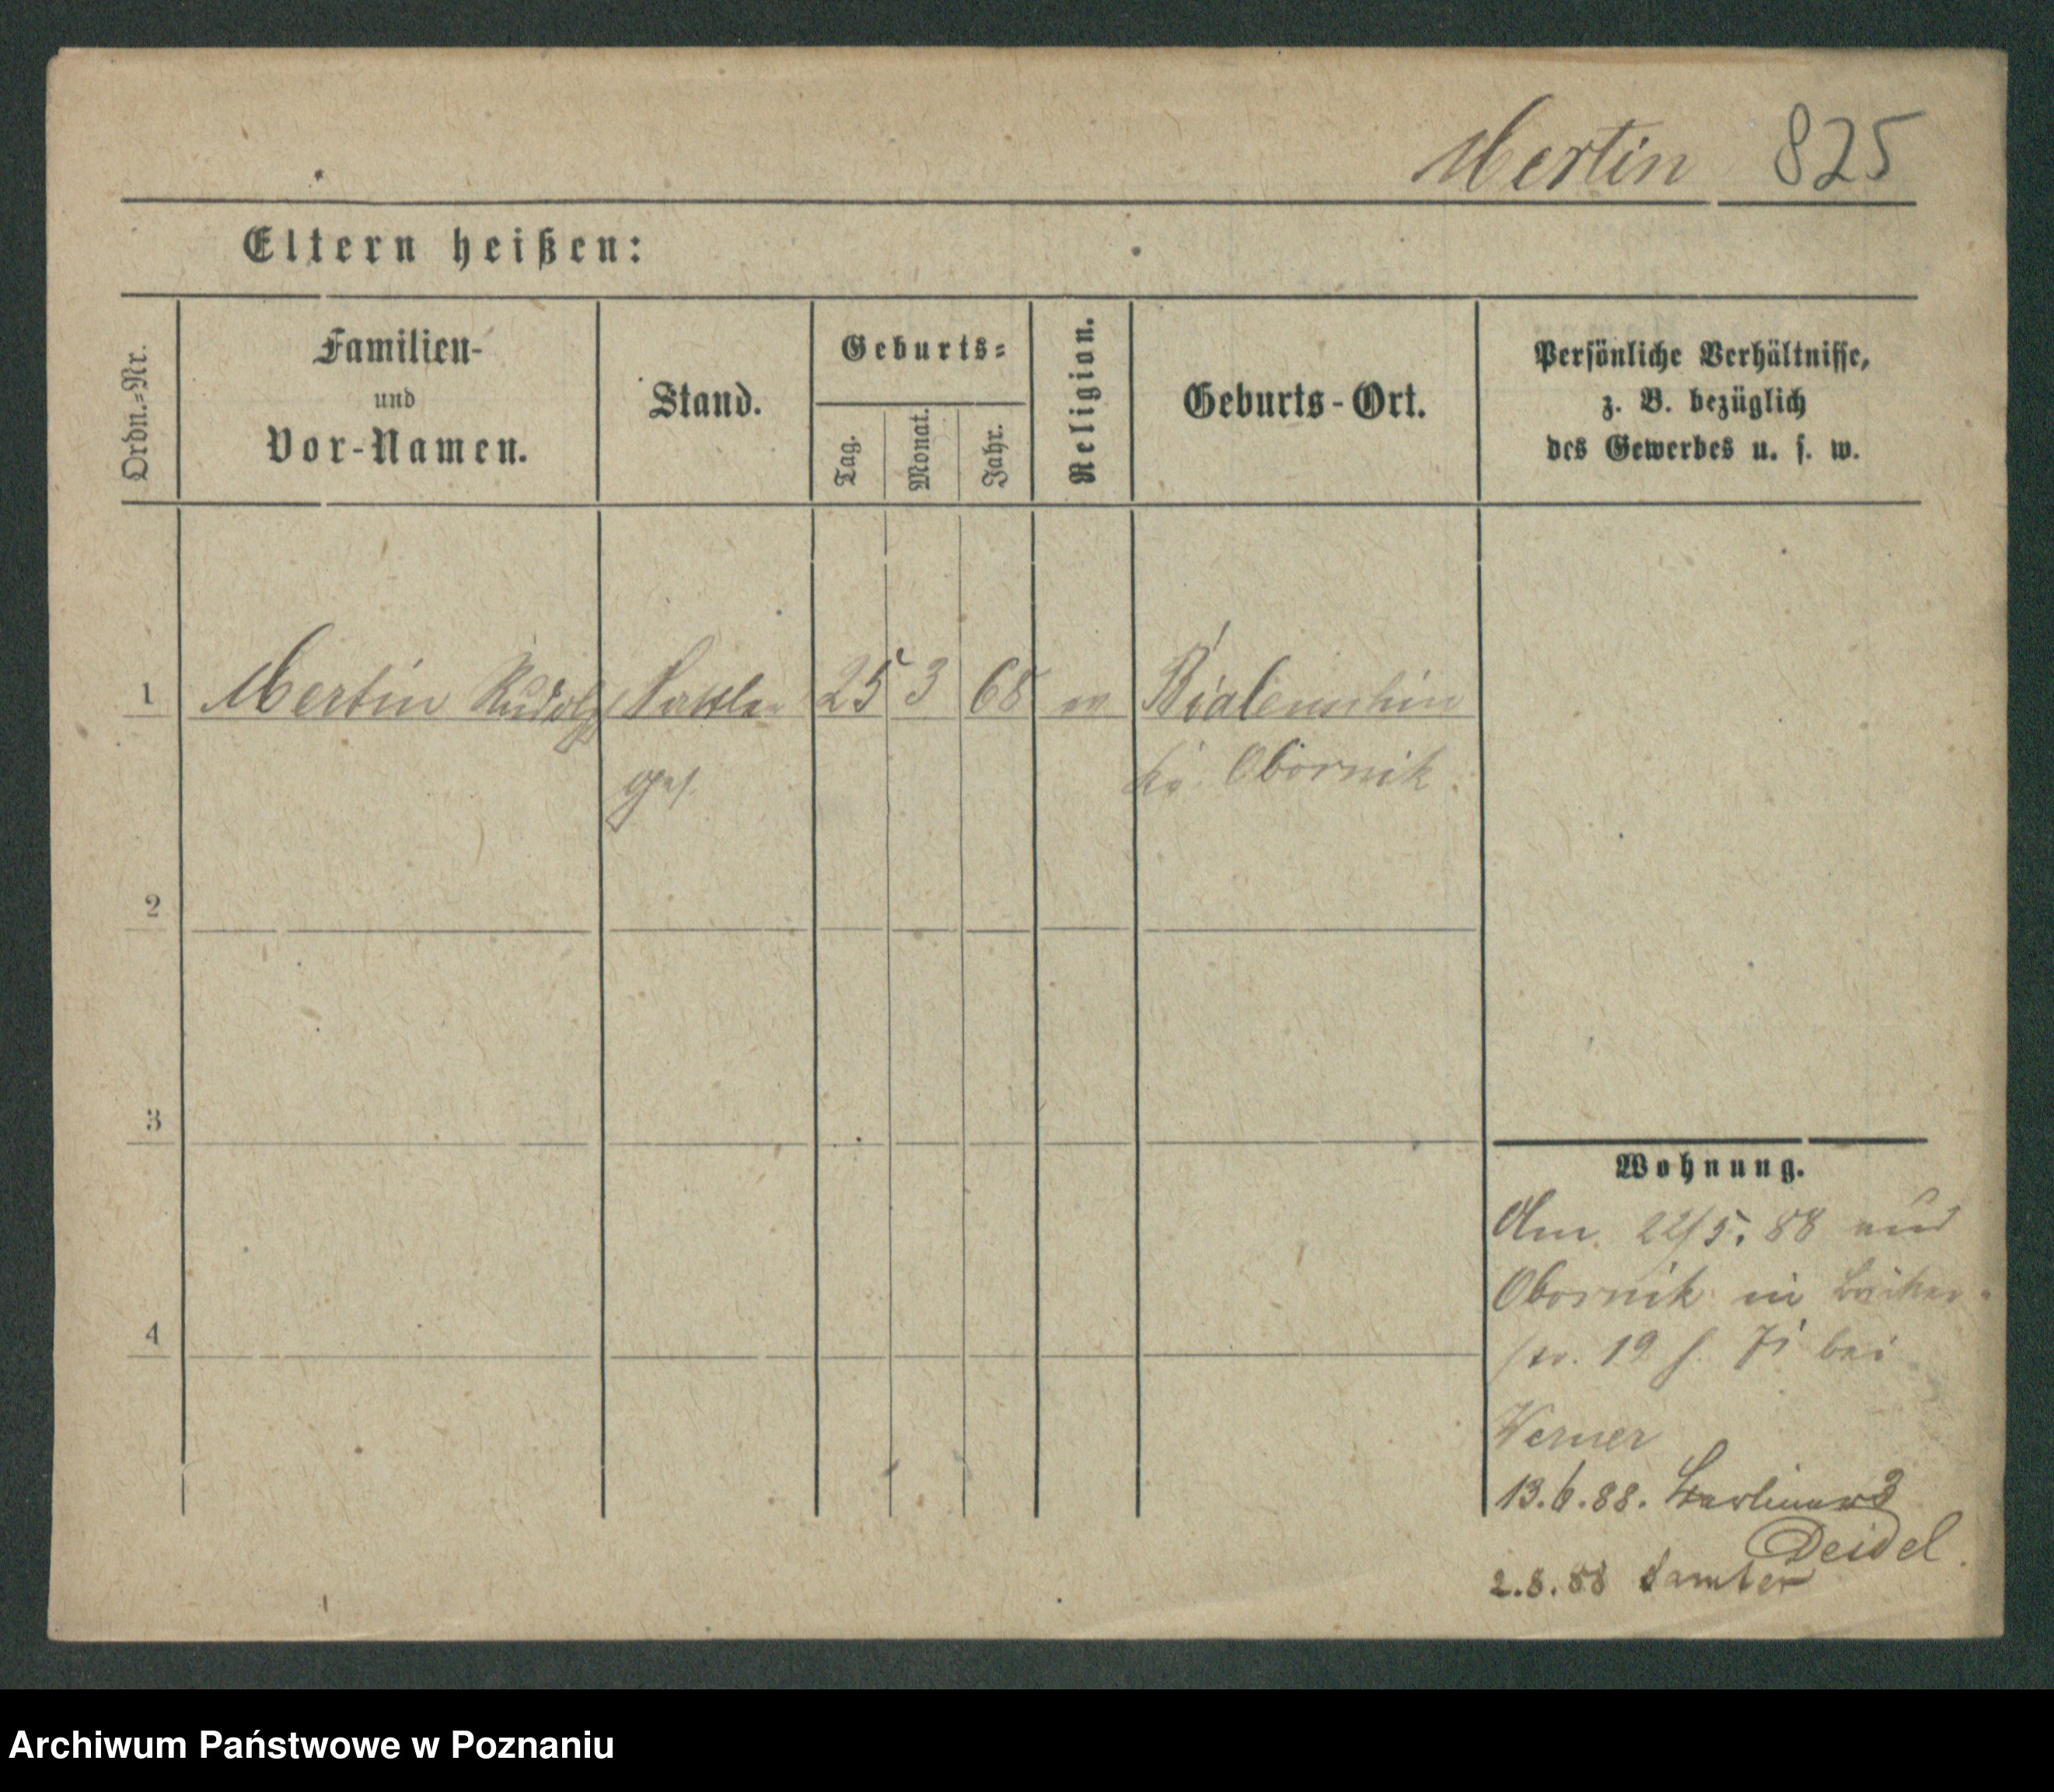 Mertin 825
Eltern heißen:
Ordn.-Nr.
Familien-
und
Vor-Namen.
Stand.
Geburts-
Tag.
Monat.
Jahr.
Religion.
Geburts-Ort.
Persönliche Verhältnisse,
z. B. bezüglich
des Gewerbes u. s. w.
1 Mertin Rudolf Sattler 25 3 68 ev
ges. Kr. Obornik
2
3
4
Wohnung.
Am 22/5. 88 aus
Obornik in Bäcker-
str. 19 bei
Werner
13.6.88.
Deidel
2.8.88 Samter
Archiwum Państwowe w Poznaniu